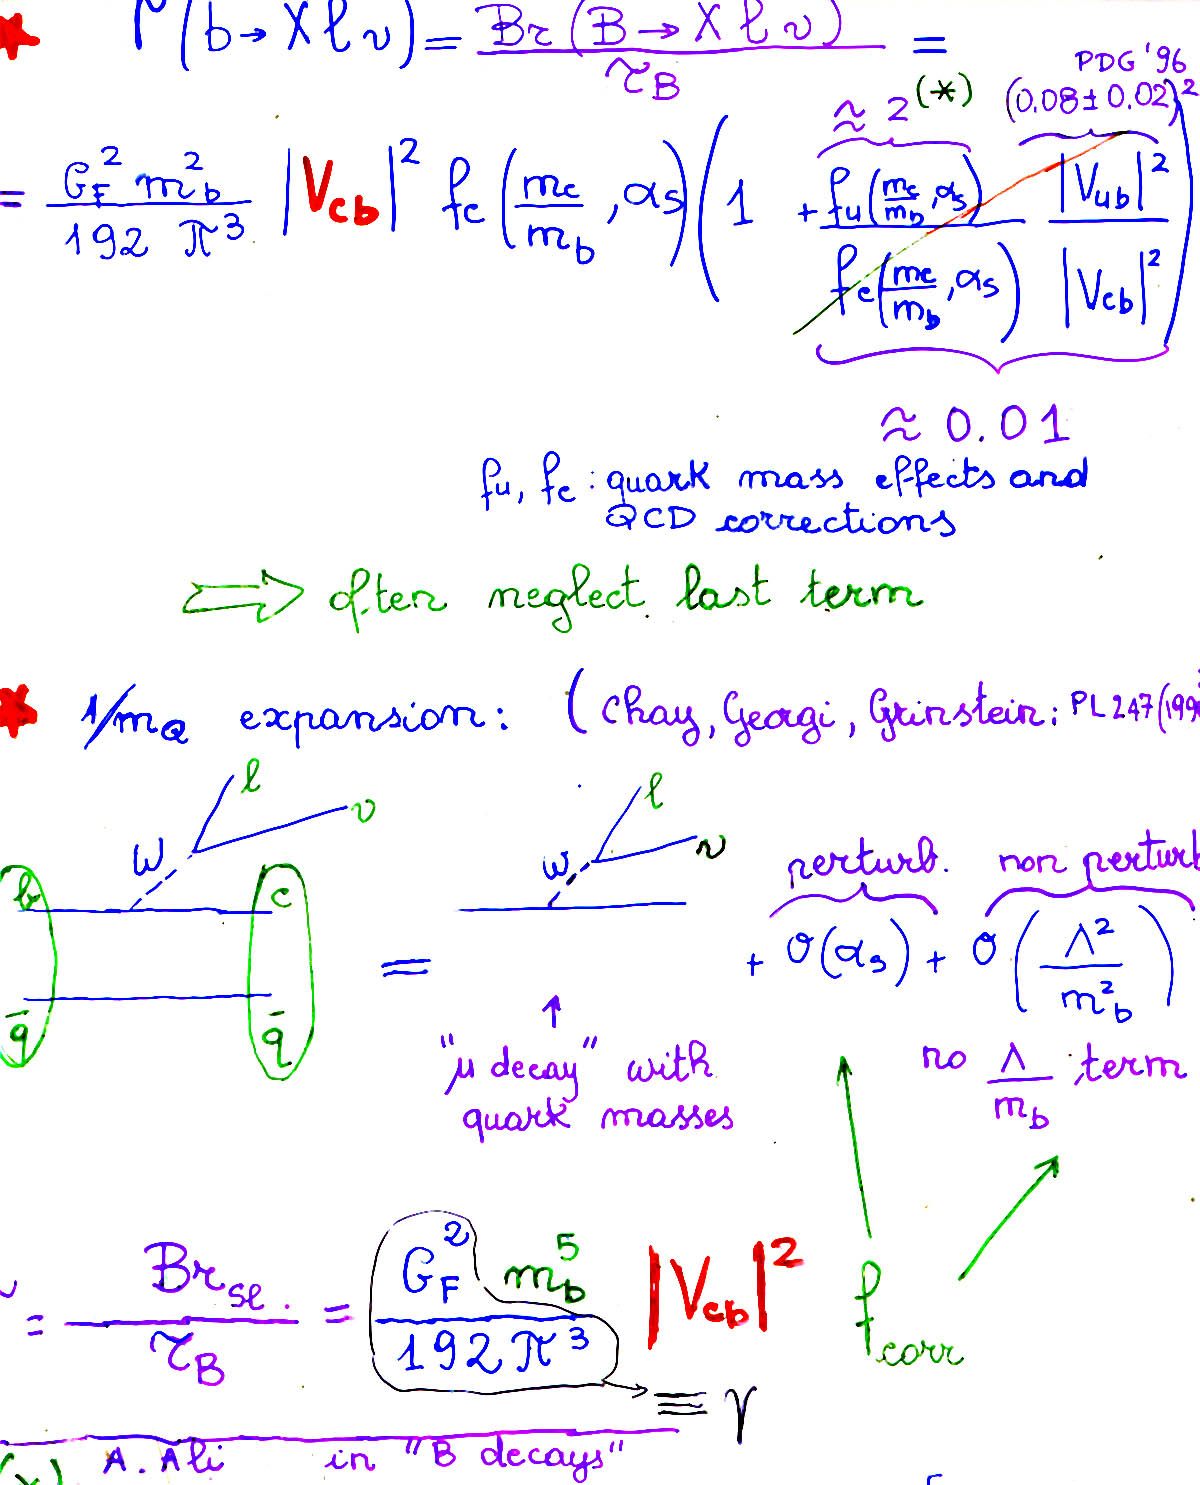 Γ(b→Xlν) = Br(B→Xlν) / τ_B =
PDG '96
≈ 2 (*) (0.08±0.02)²
= G_F² m_b² / 192 π³ |V_cb|² f_c (m_c/m_b, α_s) (1 + f_u(m_c/m_b, α_s) / f_c(m_c/m_b, α_s) |V_ub|² / |V_cb|²)
≈ 0.01
f_u, f_c : quark mass effects and
QCD corrections
⇒ often neglect last term
1/m_Q expansion: (Chay, Georgi, Grinstein: PL 247 (199
l
ν
W
b c
q̄ q̄
=
l
ν
W
perturb. non perturb
+ O(α_s) + O(Λ²/m_b²)
↑
"μ decay" with
quark masses
no Λ/m_b term
= Br_sl. / τ_B = G_F² m_b⁵ / 192 π³ |V_cb|² f_corr
≡ γ
(*) A. Ali in "B decays"